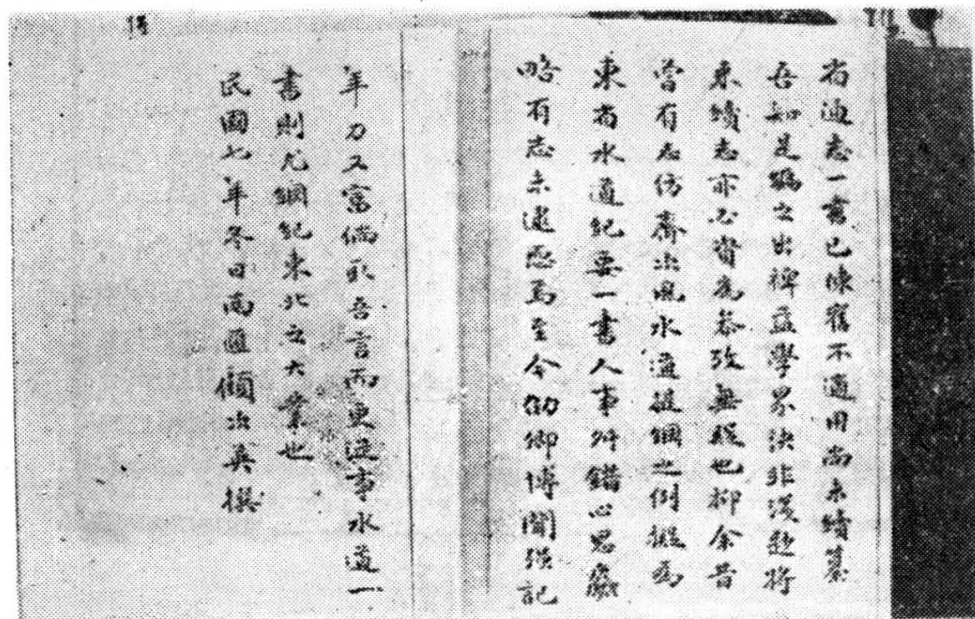 省通志一書已陳舊不適用尚未續纂
吾知是編之出裨益學界決非淺尠將
來續志亦必資為參攷無疑也抑余昔
嘗有志仿齊次風水道提綱之例擬為
東省水道紀要一書人事紛錯心思廢
略有志未逮恧焉至今仞卿博聞強記
年力又富倘取吾言而更從事水道一
書則尤綱紀東北之大業也
民國七年冬日南匯顧次英撰